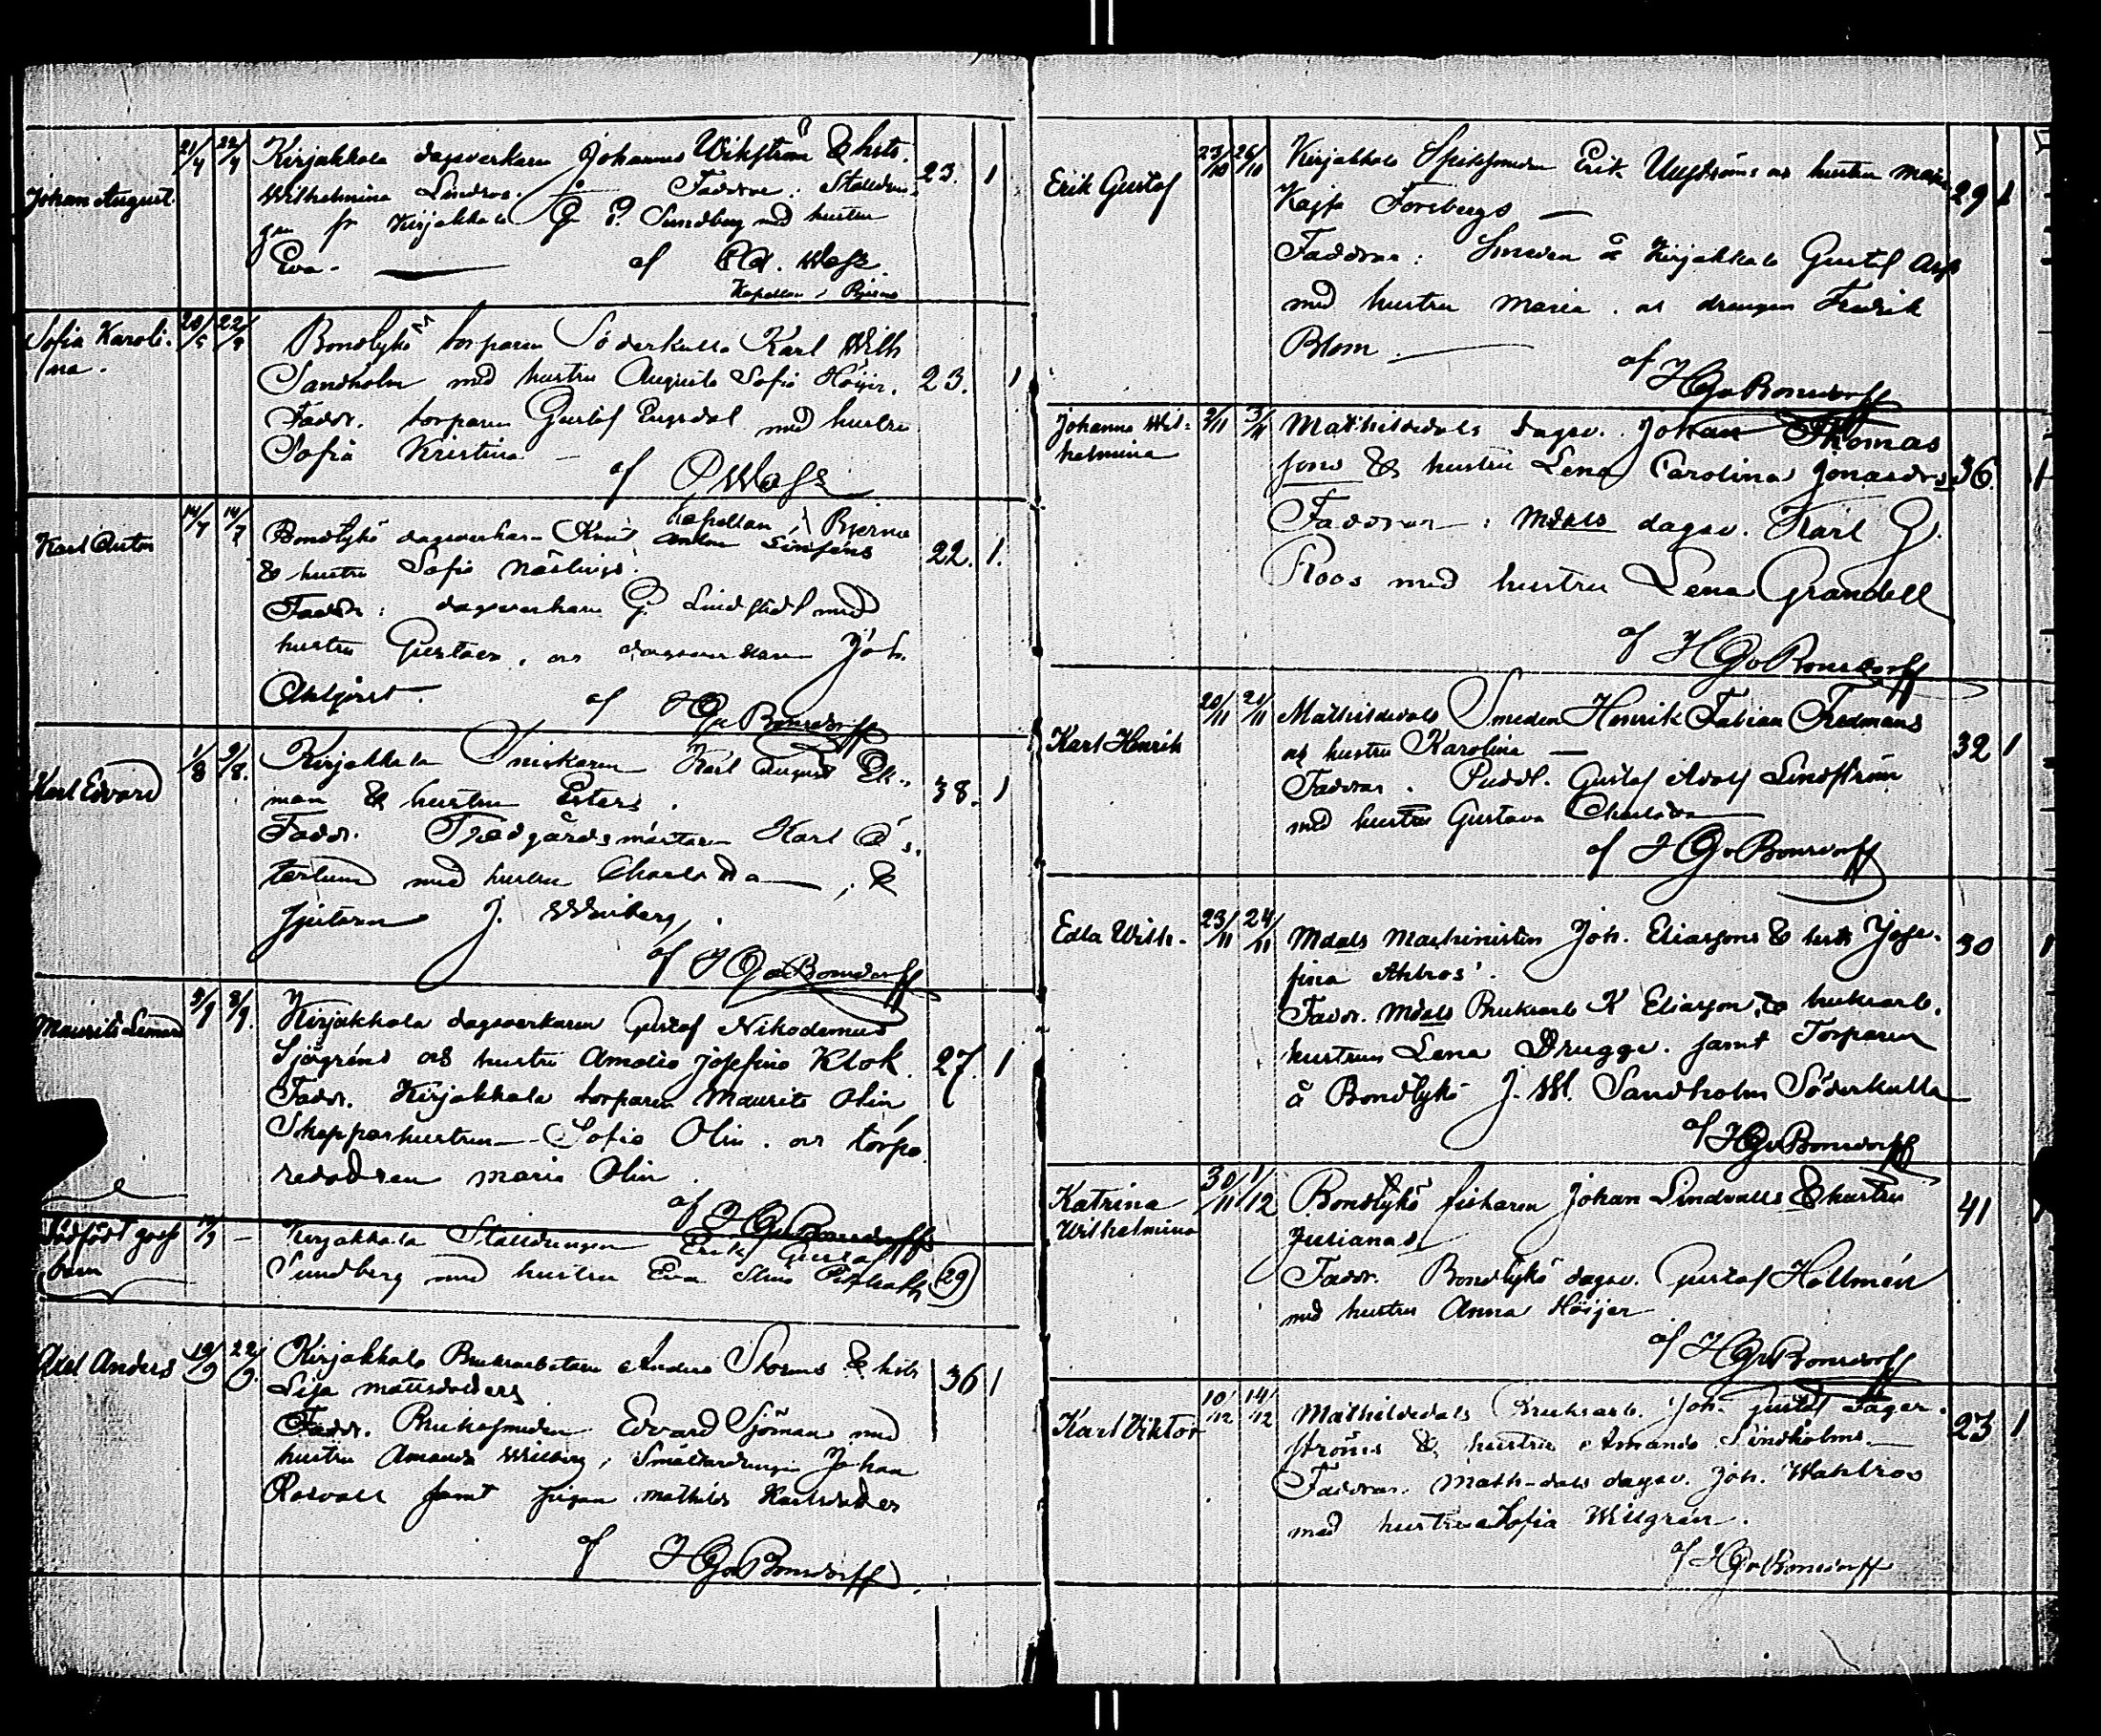 Johan August
21/4 22/4
Kirjakkala dagsverkaren Johannes Wikström & hstr.
Wilhelmina Lindroos. Faddrar: Stalldrän-
gen fr Kirjakkala G. Sundberg med hustru
Eva. af Wass.
Kapellan i Bjerno
23. 1
Sofia Karoli-
na.
22/
Bondbykö torparen Söderkulla Karl Wilh
Sandholm med hustru Augusta Sofia Höijer.
23. 1
Fadd. torparen Gustaf Engdal med hustru
Sofia Kristina
af Wass
Kapellan i Bjerno
Karl Anton
14/7 14/7
Bondbykö dagsverkaren Knut Anton
& hustru Sofia
22. 1.
Faddr: dagsverkaren G. med
hustru Gustava, o dagsverkaren Joh.
Ahlqvist.
af HGvBonsdorff
Karl Edvard
1/8 9/8.
Kirjakkala Snickaren Karl August Ek-
man & hustru Esters.
38. 1
Faddr. Trädgårdsmästaren Karl Ös-
terlund med hustru Charlotta, &
gjutaren J. Winberg.
af HGvBonsdorff
Maurits Lennard
3/9 8/9.
Kirjakkala dagsverkaren Gustaf Nikodemus
Sjögréns och hustru Amalia Josefina Klok.
27. 1
Faddr. Kirjakkala torparen Maurits Olin
Skepparhustrun Sofia Olin. och torpa-
redottren Maria Olin.
af HGvBonsdorff
Dödfödt goss
barn
/9 –
Kirjakkala Stalldrängen Erik Gustaf
Sundberg med hustru Eva Stina
(29)
Axel Anders
19/9 22/9.
Kirjakkala Bruksarbetaren Anders Storms & hstr
Lisa Mattsdotters
36 1
Faddr. Brukssmeden Edvard Sjöman med
hustru Amanda Wilberg, Smältardrängen Johan
Rosvall samt pigan Mathilda Karlsdotter
af HGvBonsdorff.
Erik Gustaf
23/10 26/10
Kirjakkala Spiksmeden Erik Ungströms och hustru Maja
Kajsa Forsbergs
29 1
Faddrar: Smeden å Kirjakkala Gustaf Asp
med hustru Maria. och drängen Fredrik
Blom.
af HGvBonsdorff
Johanna Wil-
helmina
2/11 3/11
Mathildedals dagsv. Johan Thomas
sons & hustru Lena Carolina Jonasdrs
36. 1
Faddrar: Mdals dagsv. Karl G.
Roos med hustru Lena Grandell
af HGvBonsdorff
Karl Henrik
20/11 21/11
Mathildedals Smeden Henrik Fabian Fredmans
och hustru Karolina
32 1
Faddrar. Puddl. Gustaf Adolf Lindström
med hustru Gustava Charlotta
af HGvBonsdorff
Edla Wilh.
23/11 24/11
Mdals Machinisten Joh. Eliassons & hstr Jose-
fina Ahlroos'.
30 1
Faddr. Mdals Bruksarb K Eliasson, & bruksarb.
hustrun Lena Brugge. samt Torparen
å Bondbykö J. W. Sandholm Söderkulla
af HGvBonsdorff
Katrina
Wilhelmina
30/11 1/12
Bondbykö fiskaren Johan Lindvalls & hustru
Julianas
41 1
Faddr. Bondbykö dagsv. Gustaf Hollmén
med hustru Anna Höijer
af HGvBonsdorff
Karl Viktor
10/12 14/12
Mathildedals Bruksarb. Joh. Gustaf Fager-
ströms & hustru Amanda Lindholms.
23 1
Faddrar. Math-dals dagsv. Joh. Wahlroos
med hustru Sofia Willgren.
af HGvBonsdorff